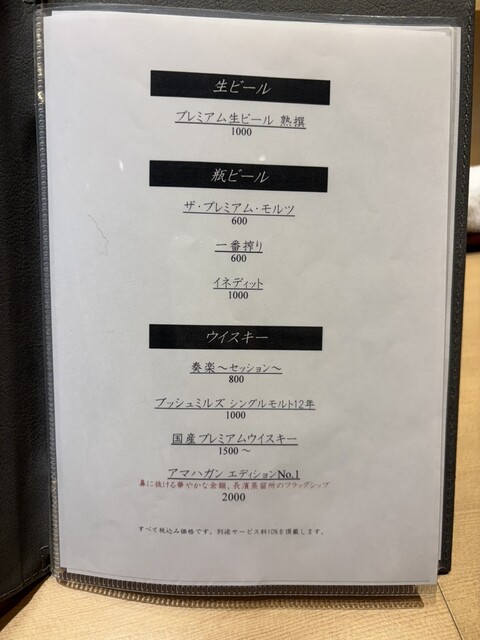 生ビール
プレミアム生ビール 熟撰
1000
瓶ビール
ザ・プレミアム・モルツ
600
一番搾り
600
イネディット
1000
ウイスキー
奏楽〜セッション〜
800
ブッシュミルズ シングルモルト12年
1000
国産プレミアムウイスキー
1500〜
アマハガン エディションNo.1
鼻に抜ける華やかな余韻、長濱蒸留所のフラッグシップ
2000
すべて税込み価格です。別途サービス料10%を頂戴します。